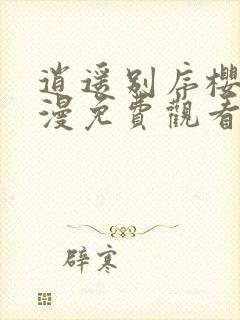 逍遥别序櫻
漫免費觀看
辟寒